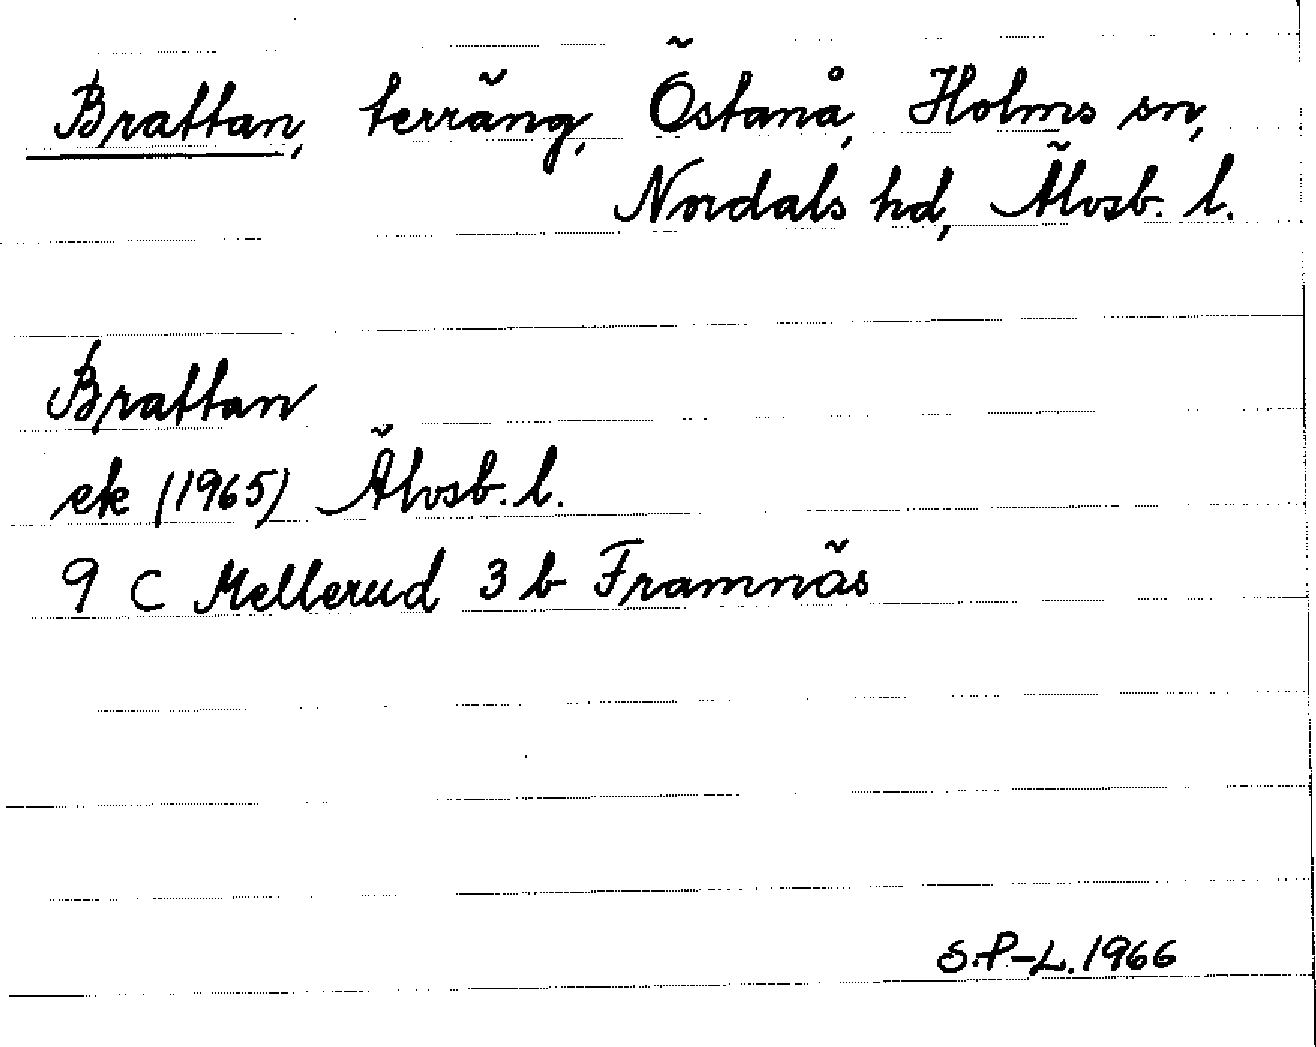 Brattan, terräng, Östanå, Holms sn,
Nordals hd, Älvsb. l.
Brattan
ek (1965) Älvsb. l.
9 C Mellerud 3 b Framnäs
S.P-L. 1966